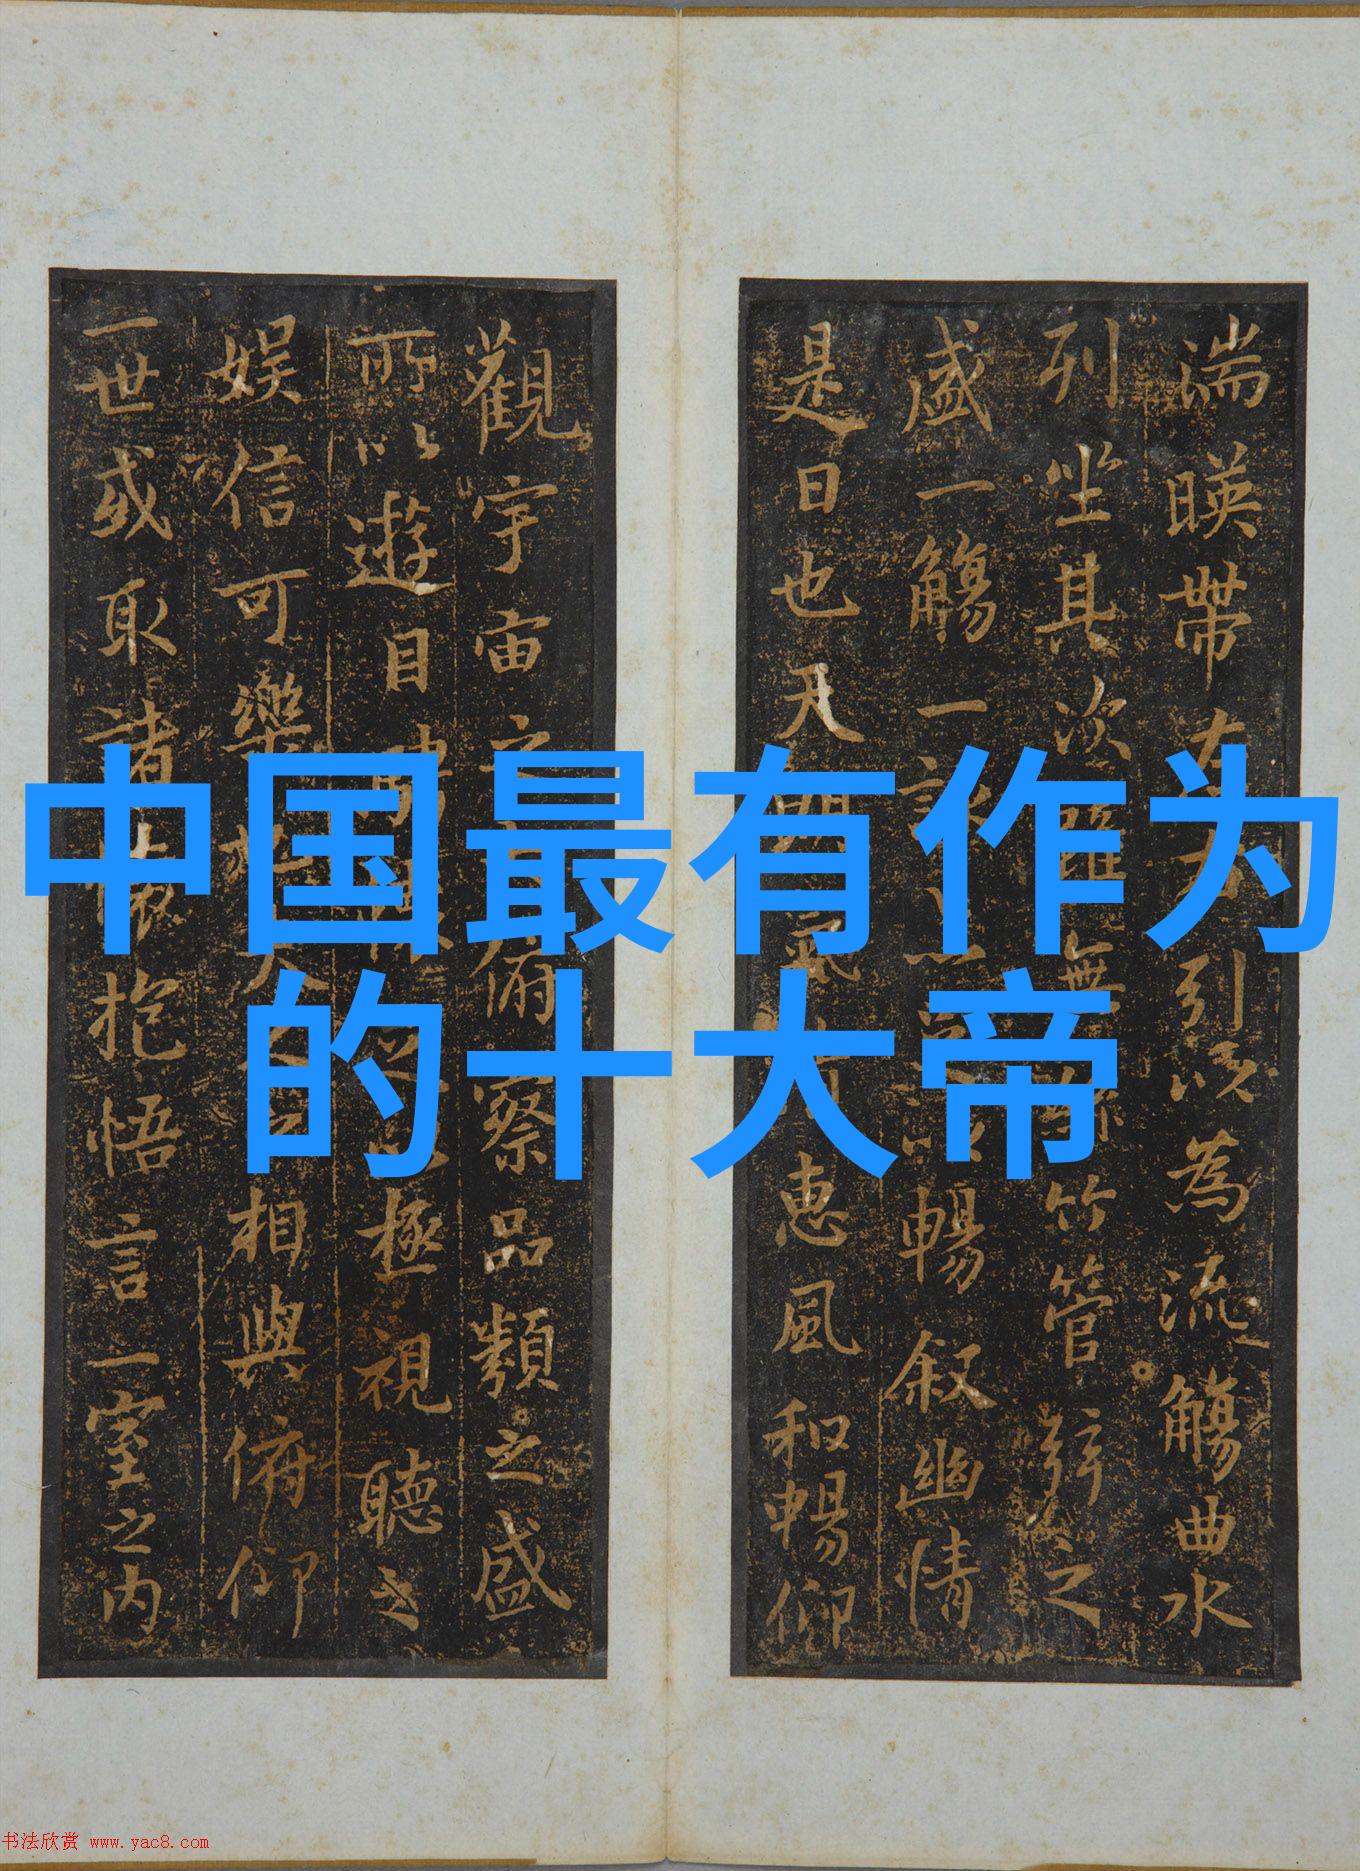 中国最有作为
的十大帝
湍暎帶左右引以為流觴曲水
列坐其次雖無竹管弦之
盛一觴一詠以暢叙幽情
是日也天朗氣惠風和暢仰
觀宇宙之俯察品類之盛
所以遊目騁懷以極視聽之
娱信可樂也夫人之相與俯仰
一世或取諸懷抱悟言一室之内
书法欣赏 www.yac8.com